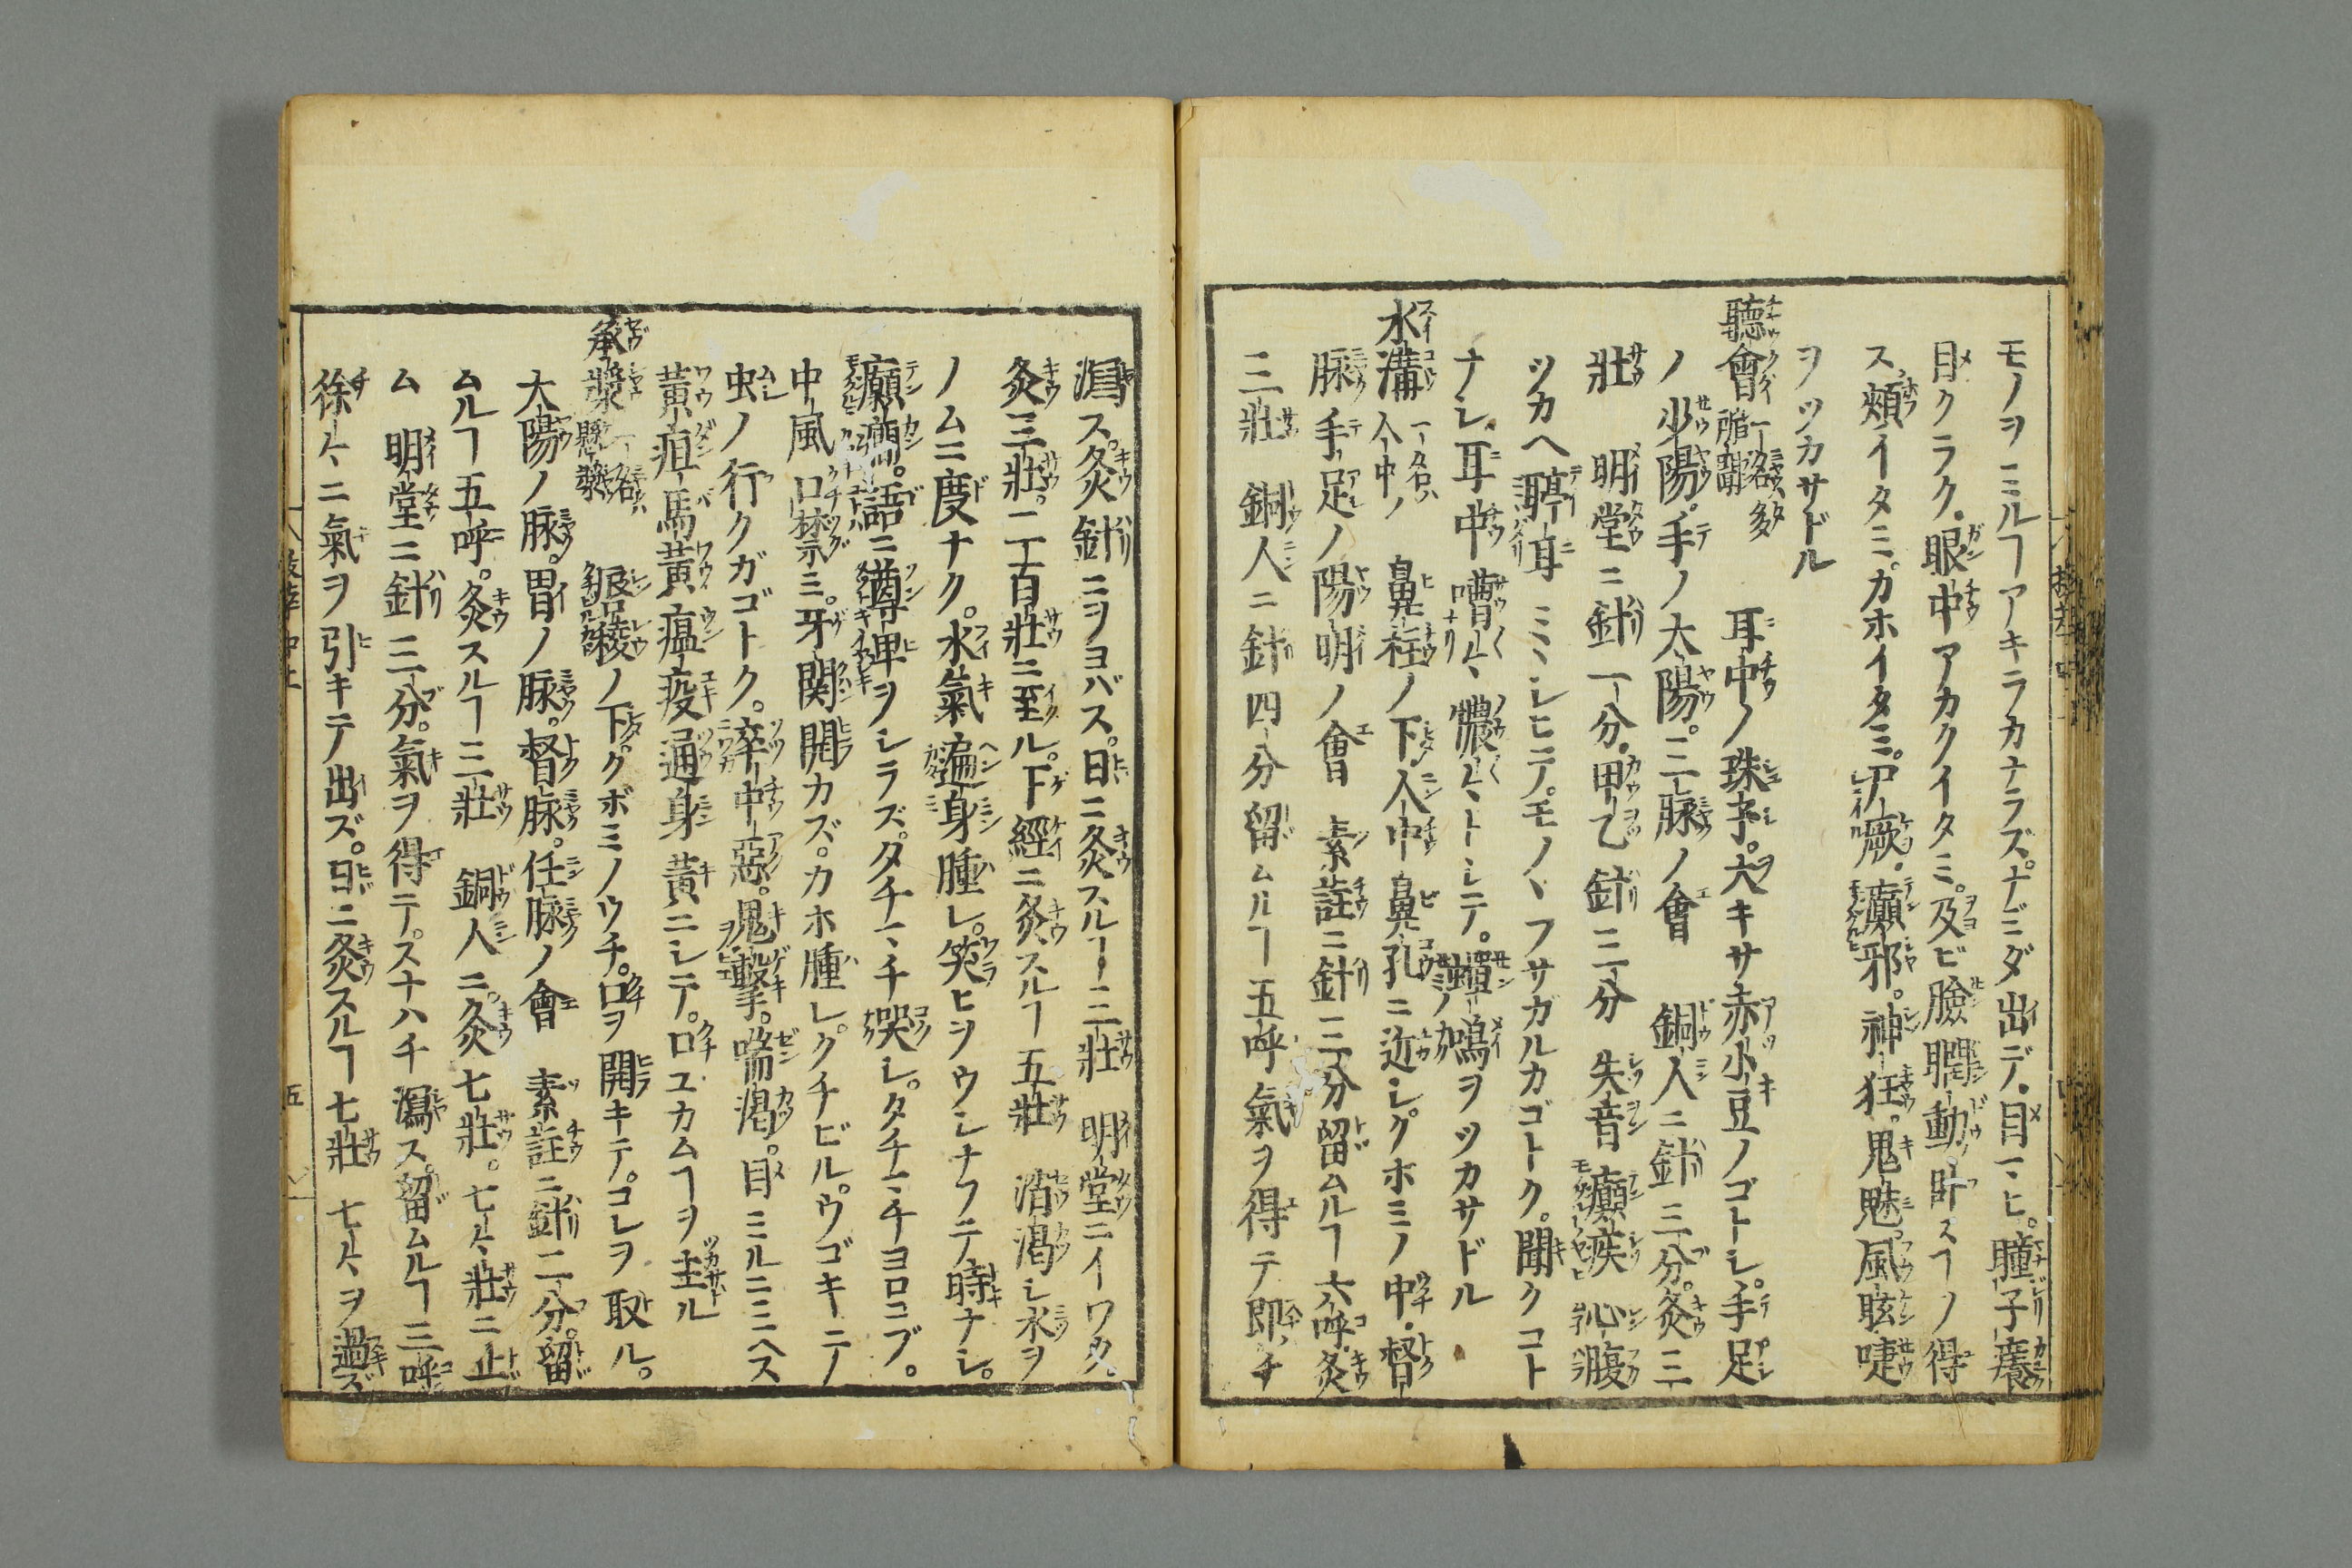 モノヲミルヿアキラカナラズ。ナミダ出デ。目マヒ。瞳子癢
目クラク。眼中アカクイタミ。及ビ臉瞤動。卧スヿノ得
ス。頰イタミ。カホイタミ。尸厥。癲邪。神狂。鬼魅。風眩。唛
ヲツカサドル
聽會 耳中ノ珠子。大キサ赤小豆ノゴトシ。手足
ノ少陽。手ノ太陽。三脉ノ會 銅人ニ針三分。灸三
壯 明堂ニ針一分。甲乙針三分 失音癲疾 心腹
ツカヘ聤耳ミヽシヒテ。モノヽフサガルカゴトク。聞クコト
ナシ。耳中嘈〻膿〻トシテ。蟬鳴ヲツカサドル
水溝 一名ハ人中ノ 鼻柱ノ下。人中鼻孔ニ近シ。クホミノ中。督
脉手足ノ陽明ノ會 素註ニ針三分留ムルヿ六呼。灸
三壯 銅人ニ針四分留ムルヿ五呼氣ヲ得テ即チ
瀉ス。灸針ニヲヨバス。日ニ灸スルヿ三壯 明堂ニイワク。
灸三壯。二百壯ニ至ル。下經ニ灸スルヿ五壯 消渇シ水ヲ
ノムニ度ナク。水氣遍身腫レ。笑ヒヲウシナフテ時ナシ。
癲癇。語ニ尊卑ヲシラズ。タチマチ哭シ。タチマチヨロコブ。
中風口禁ミ。牙関開カズ。カホ腫レ。クチビル。ウゴキテノ
虫ノ行クガゴトク。卒中惡。鬼撃。喘渇。目ミルニミヘス
黄疸馬黄瘟疫通身黄ニシテ。口ユカムヿヲ主ル
承漿 一名ハ懸漿 唇稜ノ下。クボミノウチ。口ヲ開キテ。コレヲ取ル。
大陽ノ脉。胃ノ脉。督脉。任脉ノ會 素註ニ針二分。留
ムルヿ五呼。灸スルヿ三壯 銅人ニ。灸七壯。七〻壯ニ止
ム 明堂ニ針三分。氣ヲ得テ。スナハチ瀉ス。留ムルヿ三呼
徐〻ニ氣ヲ引キテ出ズ。日ニ灸スルヿ七壯 七〻ヲ過ズ
五